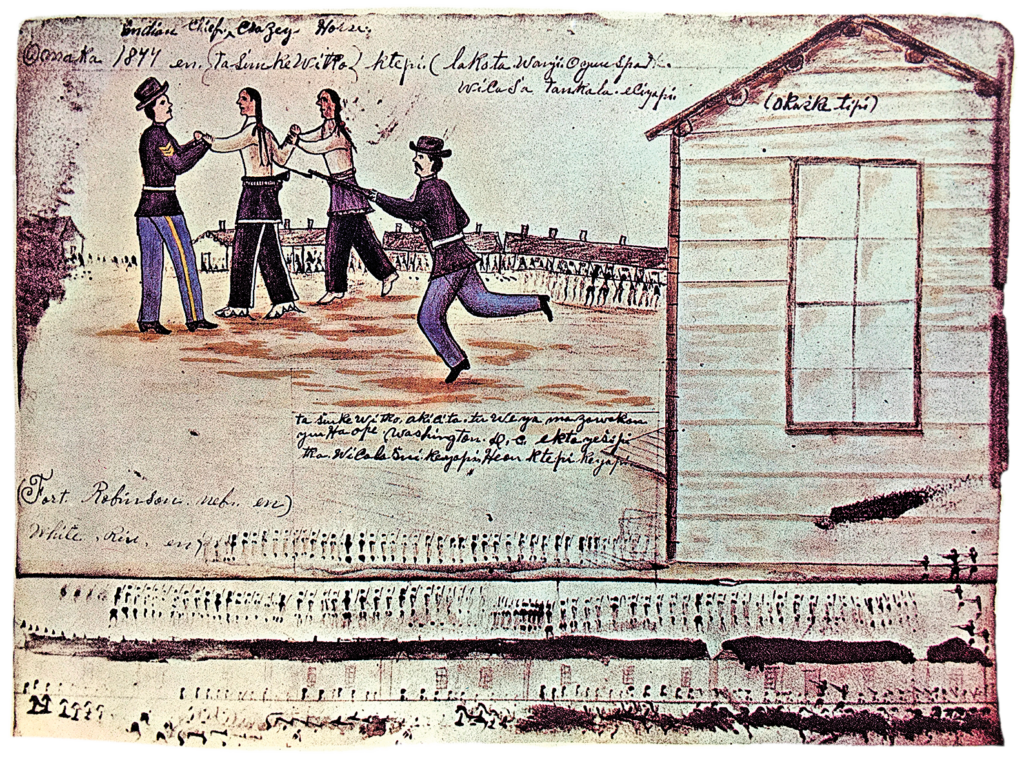 Indian Chief, Crazey Horse,
Omaka 1877 en, (ta Sunke Witko) ktepi (lakota Wanji Oyuspa)
Wicasa tankala eciyapi
(Okaske tipi)
ta Sunke Witko, akicita, ta Weya mazawakan
yuHa ope Washington. D. C. ekta yesipi
tka. Wicala Sni keyapi Heon ktepi keyapi
(Fort Robinson. neb. en)
White . River . en)